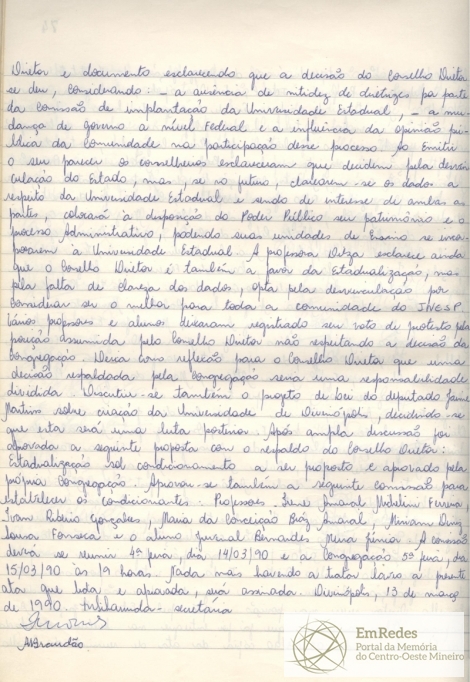 Diretor e documento esclarecendo que a decisão do Conselho Diretor
se deu, considerando: - a ausência de nitidez de diretrizes por parte
da comissão de implantação da Universidade Estadual, - a mu-
dança de governo a nível Federal e a influência da opinião pú-
blica da comunidade na participação desse processo. Ao Emitir
o seu parecer os conselheiros esclareceram que decidem pela desvin-
culação do Estado, mas, se no futuro, clarearem-se os dados a
respeito da Universidade Estadual e sendo de interesse de ambas as
partes, colocará à disposição do Poder Público seu patrimônio e o
processo Administrativo, podendo suas unidades de Ensino se incor-
porarem à Universidade Estadual. A professora esclarece ainda
que o Conselho Diretor é também a favor da Estadualização, mas
pela falta de clareza dos dados, opta pela desvinculação por
considerar ser o melhor para toda a comunidade do INESP.
Vários professores e alunos deixaram registrado seu voto de protesto pela
posição assumida pelo Conselho Diretor não respeitando a decisão da
Congregação. Deixa como reflexão para o Conselho Diretor que uma
decisão respaldada pela Congregação seria uma responsabilidade
dividida. Discutiu-se também o projeto de lei do deputado Jaime
Martins sobre criação da Universidade de Divinópolis, decidindo-se
que esta será uma luta posterior. Após ampla discussão foi
aprovada a seguinte proposta com o respaldo do Conselho Diretor:
Estadualização sob condicionamento a ser proposto e aprovado pela
própria Congregação. Aprovou-se também a seguinte comissão para
estabelecer os condicionantes: Professores Irene Amaral Ferreira,
Ivan Ribeiro Gonçalves, Maria da Conceição Amaral, Miriam
Sousa Fonseca e o aluno Juvenal Bernardes Júnior. A comissão
deverá se reunir 4ª feira, dia 14/03/90 e a Congregação 5ª feira, dia
15/03/90 às 19 horas. Nada mais havendo a tratar lavro a presente
ata que lida e aprovada, será assinada. Divinópolis, 13 de março
de 1990. - secretária
ABrandão
EmRedes
Portal da Memória
do Centro-Oeste Mineiro